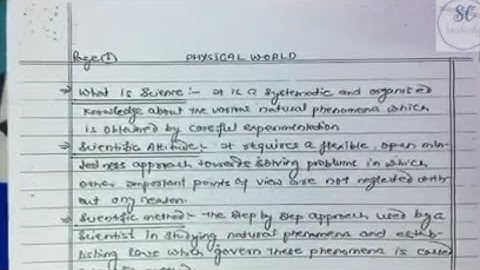 SC
Page ①
PHYSICAL WORLD
→ What is Science :- It is a systematic and organised
knowledge about the various natural phenomena which
is obtained by careful experimentation
→ Scientific Attitude :- It requires a flexible, open min-
dedness approach towards solving problems in which
other important points of view are not neglected with-
out any reason.
→ Scientific method :- The step by step approach used by a
Scientist in studying natural phenomena and estab-
lishing laws which govern these phenomena is called